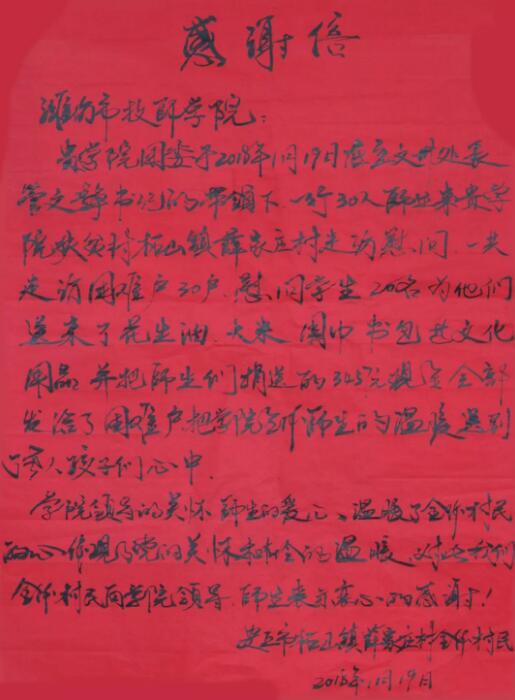 感谢信
潍坊市牧师学院：
贵学院团委于2018年1月19日在文书处长
管文书记的带领下一行30人师生来贵学
院扶贫村柘山镇薛家庄村走访慰问，一共
走访困难户30户，慰问学生20名为他们
送来了花生油、大米、围巾书包其文化
用品并把师生们捐送的345元现金全部
发给了困难户，把学院全体师生的温暖送到
老人孩子们心中。
学院领导的关怀师生的爱心、温暖了全体村民
的心体现了党的关怀和社会的温暖，对此我们
全体村民向学院领导、师生表示衷心的感谢！
安丘市柘山镇薛家庄村全体村民
2018年1月19日